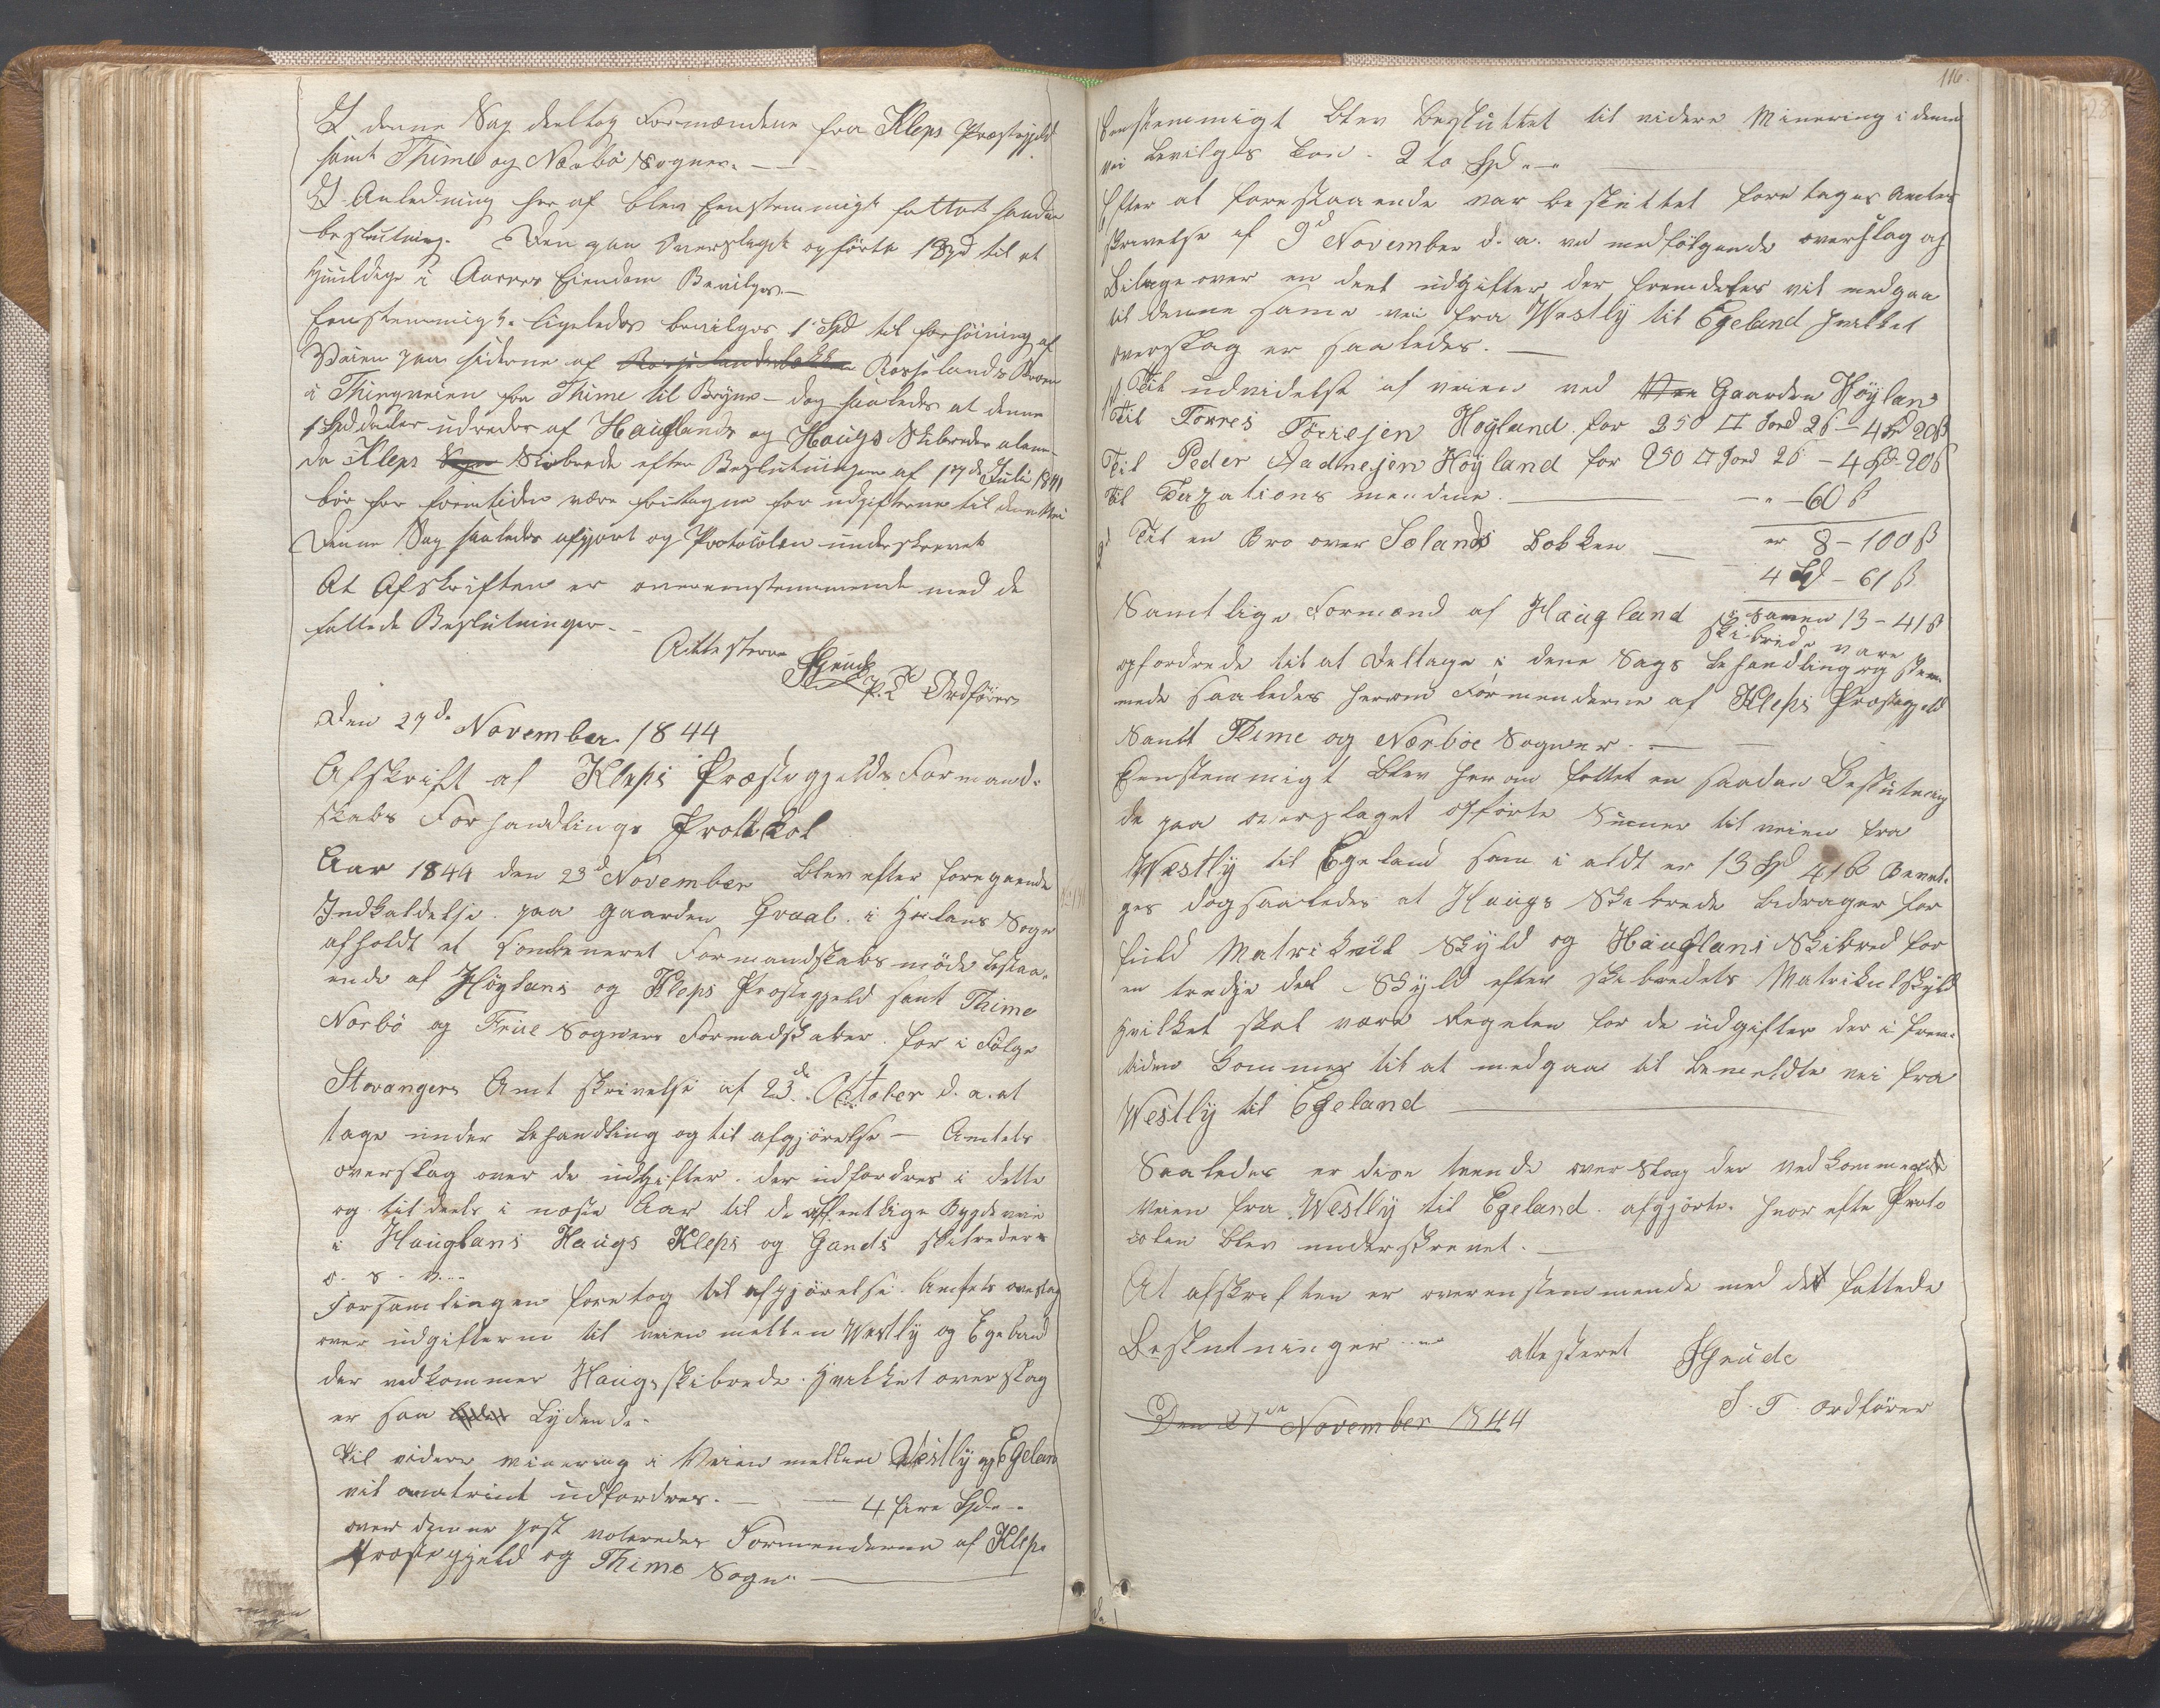 I denne Sag deeltog Formændene fra Kleps Præstegjeld
samt Thime og Nærbö Sogner. —
I Anledning her af blev Eenstemmigt fattet saadan
beslutning. Den paa Overslaget opförte 1 Spd til et
i Aarres Eiendom Bevilges —
Eenstemmigt ligeledes bevilges 1 Spd til forhöining af
Veien paa siderne af Rosselands Broen
i Thingveien fra Thime til Bryne — dog saaledes at denne
1 Spd udredes af Hauglands og Haugs Skibreder alene
da Kleps Skibrede efter Beslutningen af 17de Juli 1841
bör for fremtiden være fritagne for udgifterne til denne Vei
Denne Sag saaledes afgjort og Protocolen underskrevet
At Afskriften er overeensstemmende med de
fattede Beslutninger. —
Attesterer
p. t. Ordförer
Den 27de November 1844
Afskrift af Kleps Præstegjelds Formand-
skabs Forhandlings Protokol
Aar 1844 den 23d November blev efter foregaaende
Indkaldelse paa gaarden Graal i Hölans Sogn
afholdt et Combeneret Formandskabsmöde bestaa-
ende af Höylans og Kleps Prestegjeld samt Thime
Norbö og Frue Sogners Formadskaber for i Fölge
Stavangers Amt skrivelse af 23de October d. a. at
tage under behandling og til afgjörelse — Amtets
overslag over de udgifter der udfordres i dette
og tildeels i næste Aar til de offentlige Bygdeveie
i Hauglans Haugs Kleps og Gands skibreder
o. s. v. —
Forsamlingen foretog til afgjörelse Amtets overslag
over udgifterne til veien mellem Westly og Egeland
der vedkommer Haugs skibrede. Hvilket overslag
er saa Lydende.
Til videre minering i Veien mellem Westly og Egelan
vil omtrent udfordres. — — 4 fire Spd. —
over denne post voterede Formenderne af Klep
Præstegjeld og Thime Sogn —
116.
Eenstemmigt blev besluttet til videre Minering i denne
vei bevilges kun 2 to Spd. —
Efter at forestaaende var besluttet foretages Amtes
skrivelse af 9d November d. a. med medfölgende overslag og
Bilage over en deel udgifter der fremdeles vil medgaa
til denne same vei fra Westly til Egeland hvilket
overslag er saaledes. —
1st Til udvidelse af veien ved Gaarden Höylan
Til Torres Törresen Hogland for 250 □ Jord 2ß — 4 Spd 20ß
Til Peder Aadnesen Höyland for 250 □ Jord 2ß — 4 Spd 20ß
Til Taxations mendene. — " — 60 ß
er 8 — 100 ß
2d Til en Bro over Solands Bekken — 4 Spd — 61 ß
Samen 13 — 41 ß
Samtlige Formænd af Haugland skibrede vare
opfordrede til at deltage i dene Sags behandling og stem-
mede saaledes herom Formenderne af Kleps Præstegjeld
Samt Thime og Nærböe Sogner. —
Eenstemmigt blev herom fattet en saadan Beslutning
de paa overslaget opförte Summer til veien fra
Westly til Egeland som i aldt er 13 Spd 41ß Bevil-
ges dog saaledes at Haugs Skibrede bidrager for
fuld Matrikul Skyld og Hauglans Skibred for
en tredje del Skyld efter skibredets Matrikulskyld
Hvilket skal være Regelen for de udgifter der i frem-
tiden kommer til at medgaa til bemeldte vei fra
Westly til Egeland —
Saaledes er dise tvende overslag der vedkommende
veien fra Westly til Egeland afgjörte. hvor efte Proto
colen blev underskrevet. —
At afskriften er overenstemmende med det fattede
Beslutninger — attesteret
S. T. ordförer
Den 27de November 1844